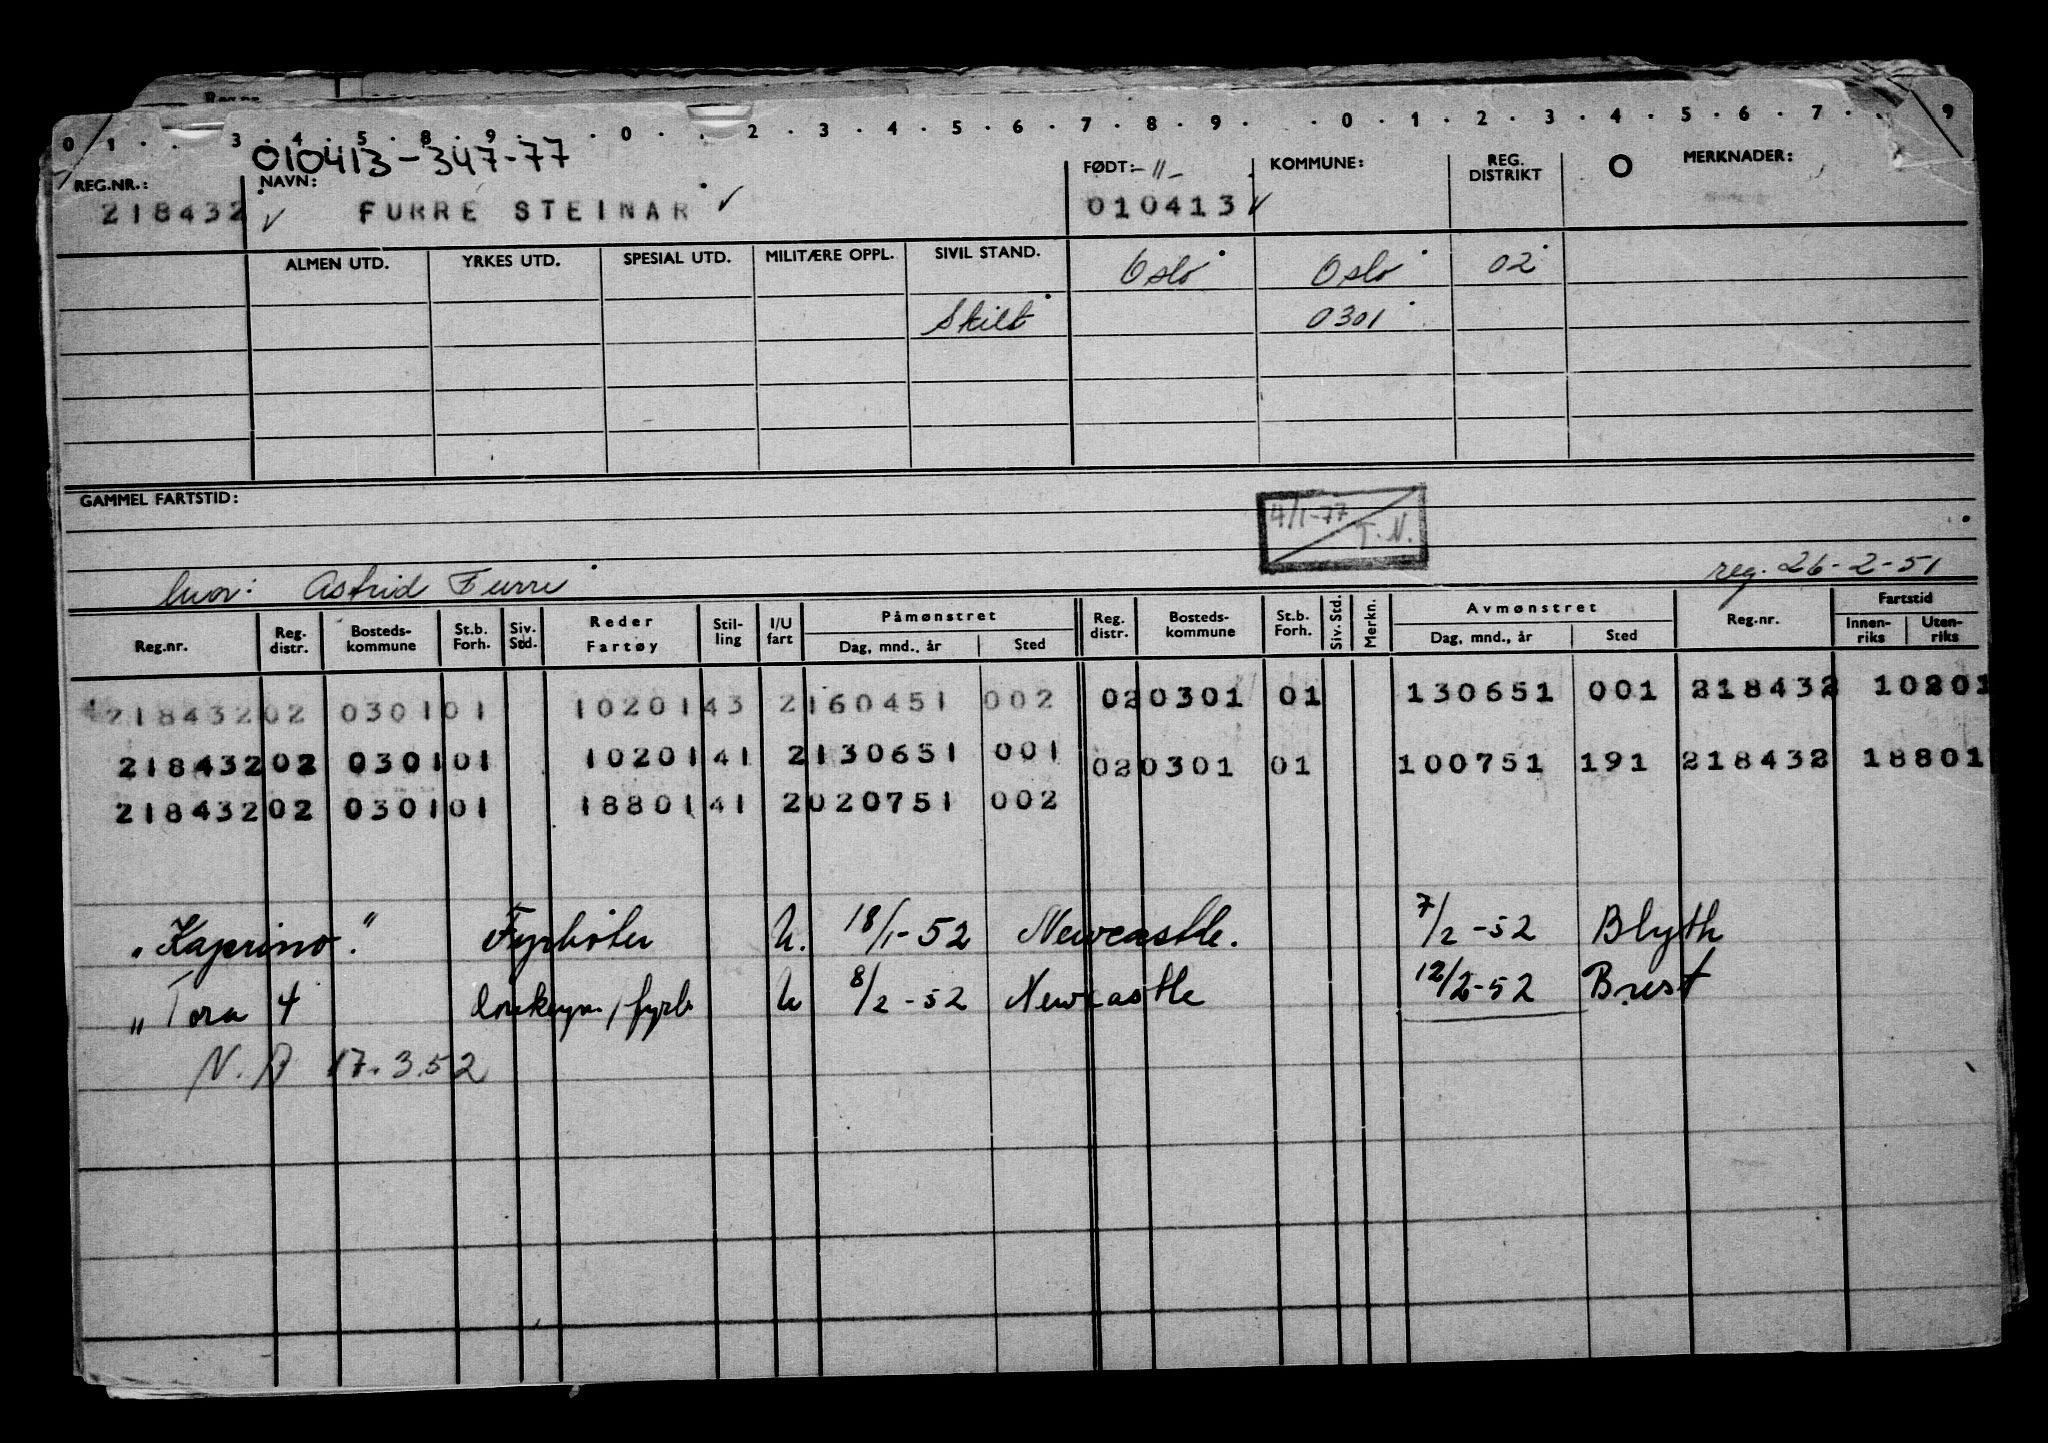 0 1 . . 3 . 4 . 5 . 8 . 9 . . 0 . . 2 . 3 . 4 . 5 . 6 . 7 . 8 . 9 . . 0 . 1 . 2 . 3 . 4 . 5 . 6 . 7 . . 9
010413-347-77
REG.NR.: NAVN: FØDT: -11- KOMMUNE: REG. DISTRIKT O MERKNADER:
218432 FURRE STEINAR 010413
ALMEN UTD. YRKES UTD. SPESIAL UTD. MILITÆRE OPPL. SIVIL STAND. Oslo Oslo 02
Skilt 0301
GAMMEL FARTSTID:
4/1-77 T.N.
mor: Astrid Furre reg. 26-2-51
Reg.nr. Reg. distr. Bosteds-kommune St.b. Forh. Siv. Std. Reder Fartøy Stil-ling I/U fart Påmønstret Dag, mnd., år Sted Reg. distr. Bosteds-kommune St.b. Forh. Siv. Std. Merkn. Avmønstret Dag, mnd., år Sted Reg.nr. Fartstid Innen-riks Uten-riks
218432 02 0301 01 10201 43 2 160451 002 02 0301 01 130651 001 218432 10201
218432 02 0301 01 10201 41 2 130651 001 02 0301 01 100751 191 218432 18801
218432 02 0301 01 18801 41 2 020751 002
"Kaprino." Fyrbøter U. 18/1-52 Newcastle. 7/2-52 Blyth
" Tora 4 donkeym./fyrb U 8/2-52 Newcastle 12/2-52 Brest
N.A 17.3.52